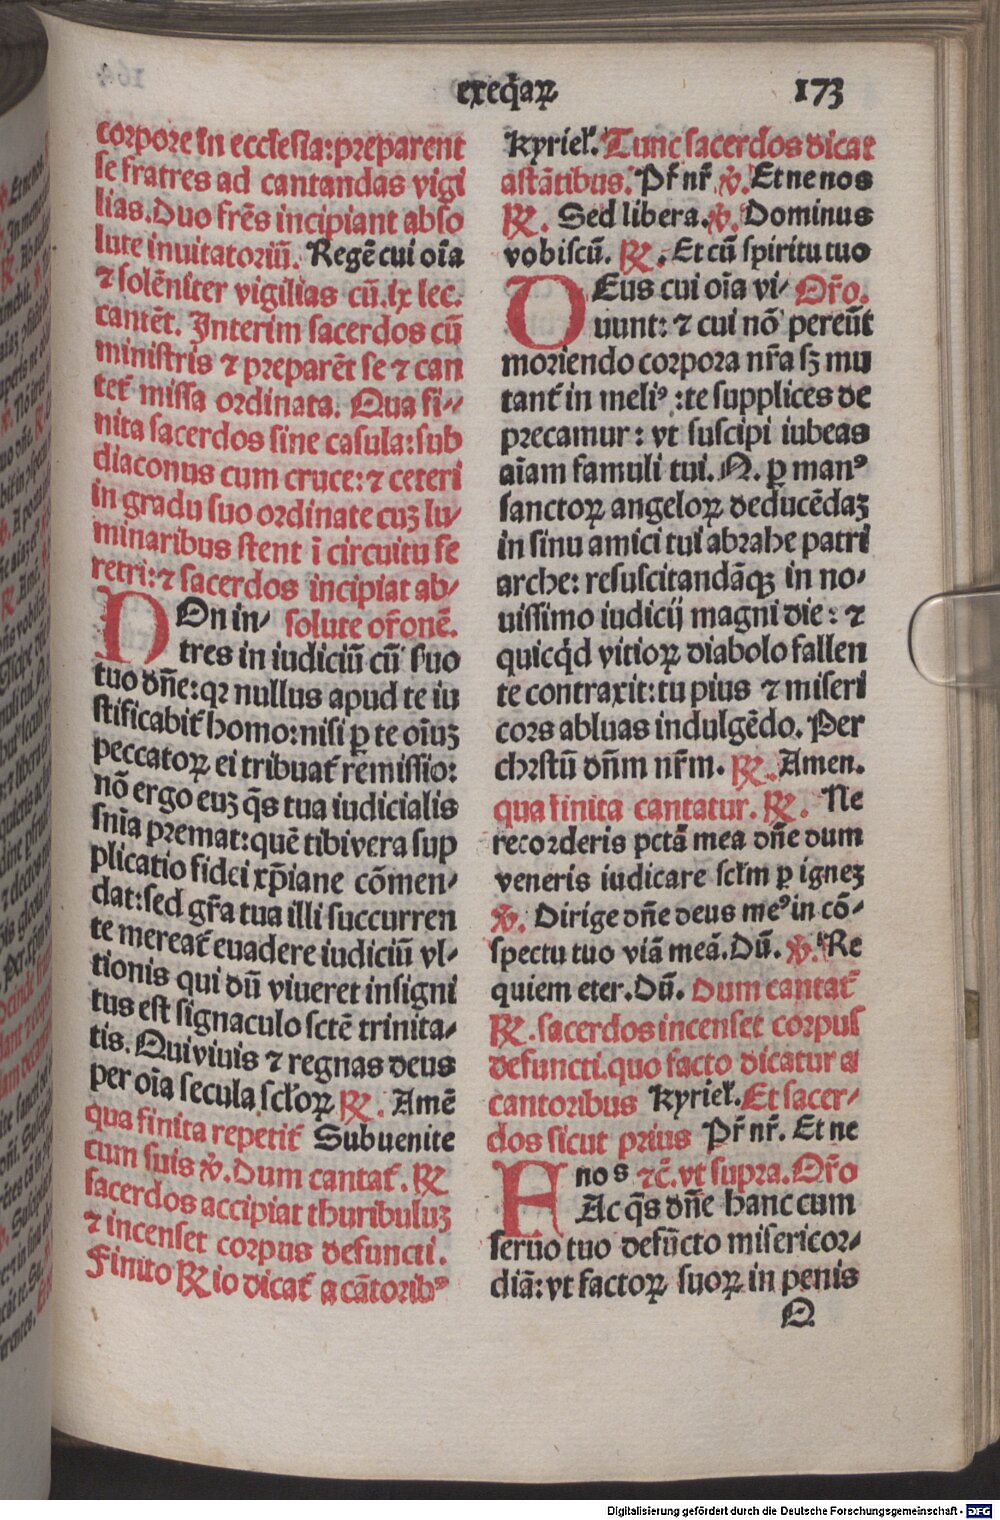 exeq̄aꝝ 173
corpore in ecclesia: preparent
se fratres ad cantandas vigi
lias. Duo frēs incipiant abso
lute inuitatoriū. Regē cui oīa
⁊ solēniter vigilias cū. ix lec.
cantēt. Interim sacerdos cū
ministris ⁊ preparēt se ⁊ can
tet᷑ missa ordinata. Qua fi⸗
nita sacerdos sine casula: sub
diaconus cum cruce: ⁊ ceteri
in gradu suo ordinate cuꝫ lu⸗
minaribus stent ī circuitu fe
retri: ⁊ sacerdos incipiat ab⸗
NOn in⸗ solute or̄onē.
tres in iudiciū cū suo
tuo dn̄e: qꝛ nullus apud te iu
stificabit᷑ homo: nisi ꝑ te oīuꝫ
peccatoꝝ ei tribuat᷑ remissio:
nō ergo euꝫ q̄s tua iudicialis
sn̄ia premat: quē tibi vera sup
plicatio fidei xp̄iane cōmen⸗
dat: sed gr̄a tua illi succurren
te mereat᷑ euadere iudiciū vl⸗
tionis qui dū viueret insigni
tus est signaculo sctē trinita⸗
tis. Qui viuis ⁊ regnas deus
per oīa secula scl̄oꝝ ℟. Amē
qua finita repetit᷑ Subuenite
cum suis ℣. Dum cantat᷑. ℟
sacerdos accipiat thuribuluꝫ
⁊ incenset corpus defuncti.
Finito ℟io dicat᷑ a cātoribꝰ
Kyriel̄. Tunc sacerdos dicat
astātibus. Pr̄ nr̄ ℣. Et ne nos
℟. Sed libera. ℣. Dominus
vobiscū. ℟. Et cū spiritu tuo
DEus cui oīa vi⸗ Or̄o.
uunt: ⁊ cui nō pereūt
moriendo corpora nr̄a sꝫ mu
tant᷑ in meliꝰ: te supplices de
precamur: vt suscipi iubeas
aīam famuli tui. N. ꝑ manꝰ
sanctoꝝ angeloꝝ deducēdaꝫ
in sinu amici tui abrahe patri
arche: resuscitandāqꝫ in no⸗
uissimo iudicij magni die: ⁊
quicq̄d vitioꝝ diabolo fallen
te contraxit: tu pius ⁊ miseri
cors abluas indulgēdo. Per
chrstū dn̄m nr̄m. ℟. Amen.
qua finita cantatur. ℟. Ne
recorderis pctā mea dn̄e dum
veneris iudicare scl̄m ꝑ igneꝫ
℣. Dirige dn̄e deus meꝰ in cō⸗
spectu tuo viā meā. Dū. ℣. Re
quiem eter. Dū. Dum cantat᷑
℟. sacerdos incenset corpus
defuncti. quo facto dicatur a
cantoribus Kyriel̄. Et sacer⸗
dos sicut prius Pr̄ nr̄. Et ne
nos ⁊c̄. vt supra. Or̄o
FAc q̄s dn̄e hanc cum
seruo tuo defūcto misericor⸗
diā: vt factoꝝ suoꝝ in penis
Q
Digitalisierung gefördert durch die Deutsche Forschungsgemeinschaft - DFG